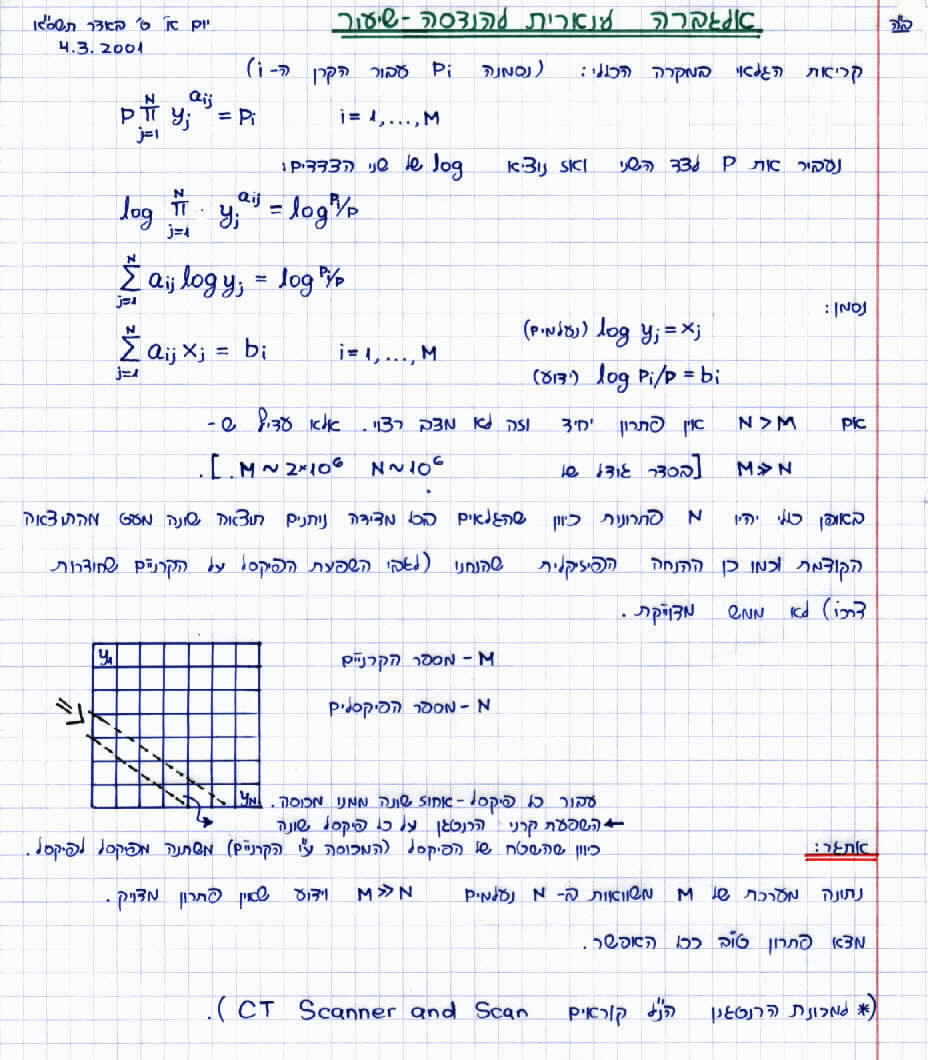 ב"ה
אלגברה לינארית להנדסה - שיעור
יום א' ט' באדר תשס"א
4.3.2001
קריאת הגלאי במקרה הכללי: (נסמנה Pi עבור הקרן ה-i)
P ∏_{j=1}^{N} y_j^{a_ij} = P_i    i = 1,...,M
נעביר את P לצד השני ואז נוציא log של שני הצדדים:
log ∏_{j=1}^{N} · y_j^{a_ij} = log P_i/P
∑_{j=1}^{N} a_ij log y_j = log P_i/P
נסמן:
(נעלמים) log y_j = x_j
∑_{j=1}^{N} a_ij x_j = b_i    i = 1,...,M
(ידוע) log P_i/P = b_i
אם N > M אין פתרון יחיד וזה לא מצב רצוי. אלא עדיף ש-
M ≫ N [בסדר גודל של N ~ 10^6 M ~ 2×10^6 .].
באופן כללי יהיו N פתרונות כיוון שהגלאים בכל מדידה נותנים תוצאה שונה מעט מהתוצאה
הקודמת וכמו כן ההנחה הפיזיקלית שהנחנו (לגבי השפעת הפיקסל על הקרניים שחודרות
דרכו) לא ממש מדוייקת.
M - מספר הקרניים
N - מספר הפיקסלים
y_1
y_N
עבור כל פיקסל - אחוז שונה ממנו מכוסה.
← השפעת קרני הרנטגן על כל פיקסל שונה
כיוון שהשטח של הפיקסל (המכוסה ע"י הקרניים) משתנה מפיקסל לפיקסל.
אתגר:
נתונה מערכת של M משוואות ב- N נעלמים M ≫ N וידוע שאין פתרון מדויק.
מצא פתרון טוב ככל האפשר.
(* למכונת הרנטגן הנ"ל קוראים CT Scanner and Scan).